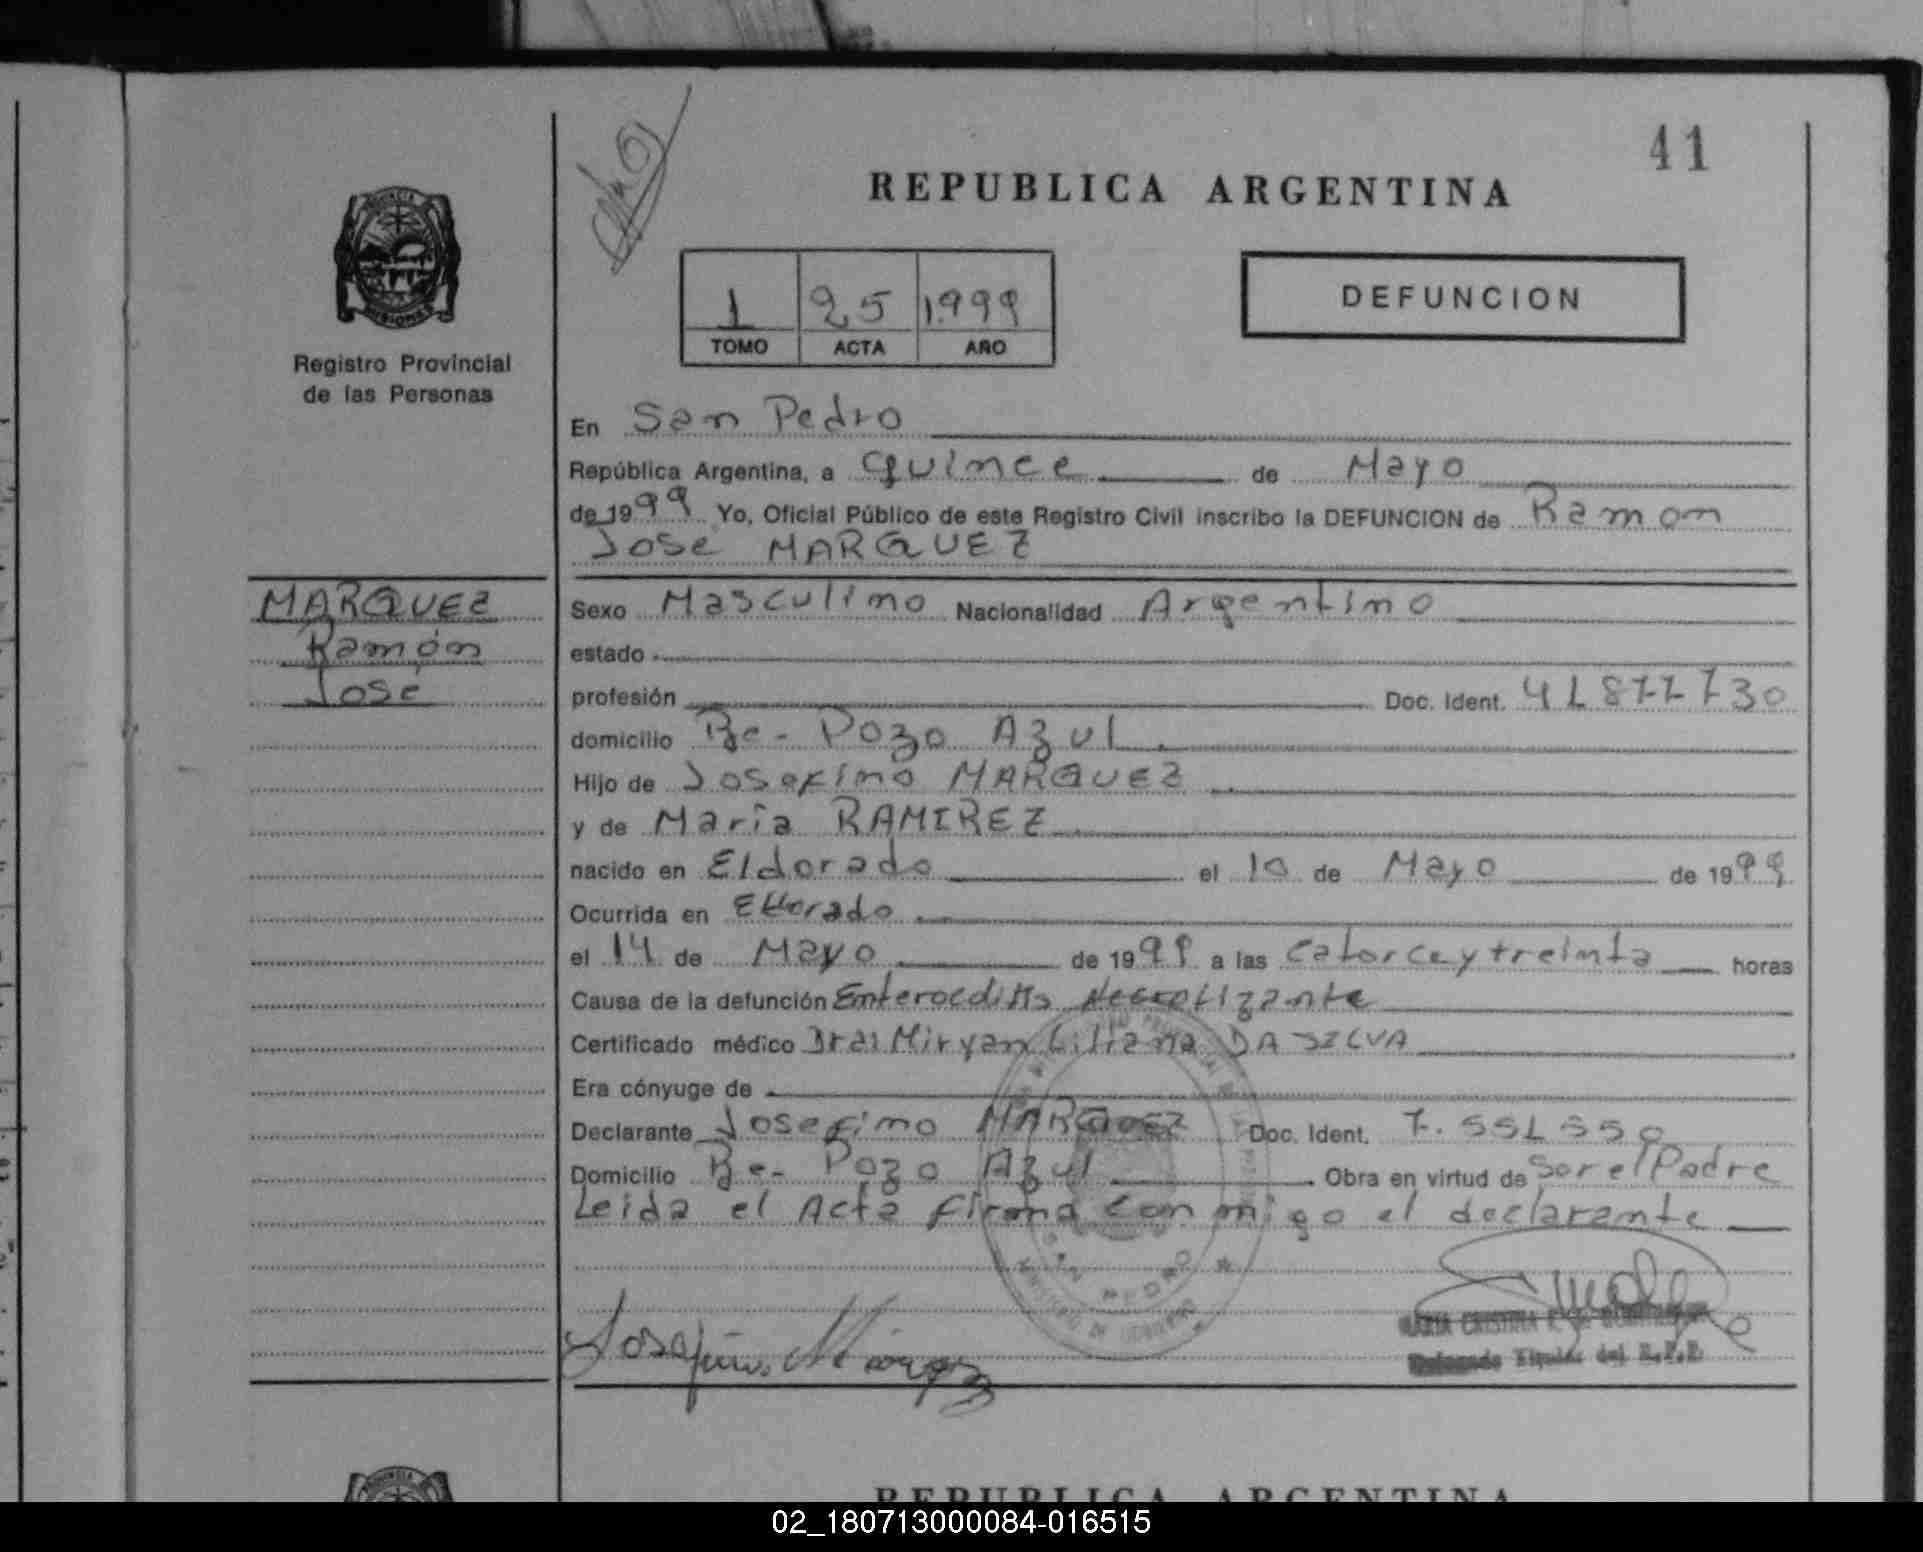 41
REPUBLICA ARGENTINA
PROVINCIA
MISIONES
Registro Provincial
de las Personas
1 25 1.999
TOMO ACTA AÑO
DEFUNCION
En San Pedro
República Argentina, a quince de Mayo
de 1999 Yo, Oficial Público de este Registro Civil inscribo la DEFUNCION de Ramon
Jose MARQUEZ
MARQUEZ
Ramón
José
Sexo Masculino Nacionalidad Argentino
estado
profesión Doc. Ident. 41877730
domicilio Pje- Pozo Azul.
Hijo de Josefino MARQUEZ
y de Maria RAMIREZ
nacido en Eldorado el 10 de Mayo de 1999
Ocurrida en Eldorado
el 14 de Mayo de 1999 a las catorce y treinta horas
Causa de la defunción Enterocolitis Necrotizante
Certificado médico Dra: Miryan Liliana DA SILVA
Era cónyuge de
Declarante Josefino MARQUEZ Doc. Ident. 7.551.550
Domicilio Pje- Pozo Azul Obra en virtud de Ser el Padre
Leida el Acta firma con migo el declarante
SAN PEDRO
MINISTERIO DE GOBIERNO
Josefino Marquez
MARIA CRISTINA
Delegado Titular del R.P.P.
PROVINCIA
REPUBLICA ARGENTINA
02_180713000084-016515